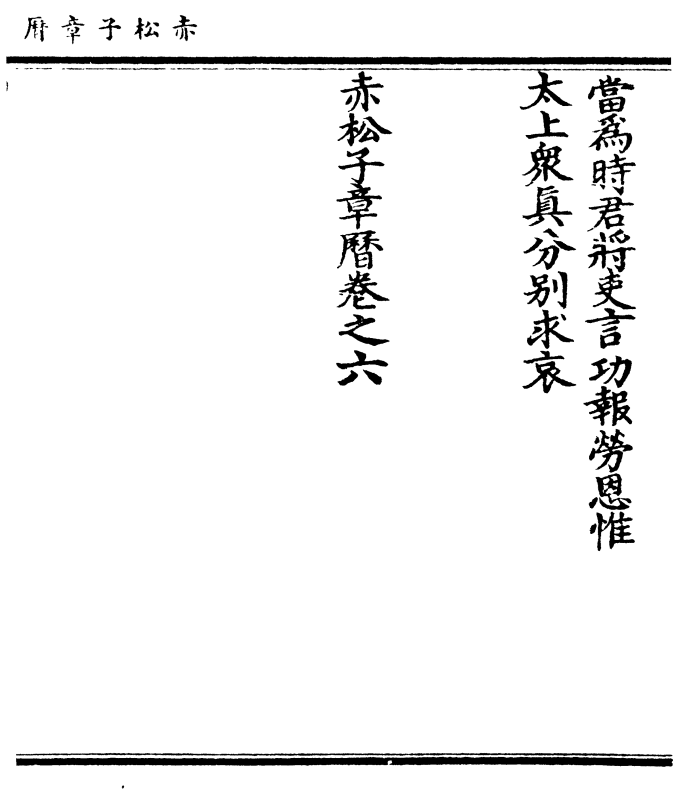 赤松子章曆
當為時君將吏言功報勞恩惟
太上衆真分别求哀
赤松子章曆卷之六